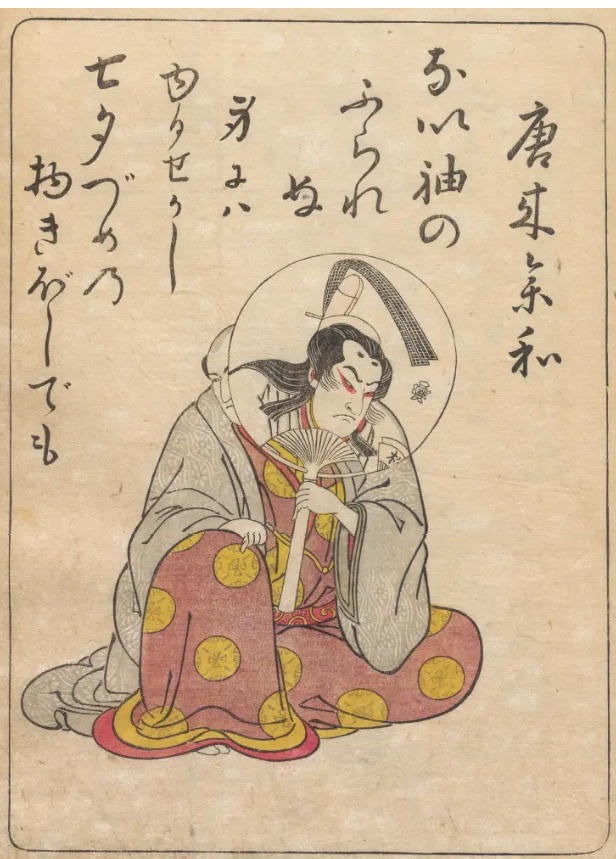 唐来参和
ない袖の
ふられ
ぬ
身にハ
ゆるせかし
七夕づめの
物きぼしでも